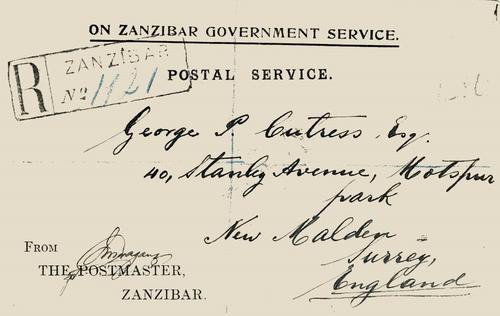 ON ZANZIBAR GOVERNMENT SERVICE.
R ZANZIBAR
No 1121
POSTAL SERVICE.
George P. Cutress Esq.
40, Stanley Avenue, Motspur
park
New Malden
Surrey,
England
FROM
THE POSTMASTER,
ZANZIBAR.